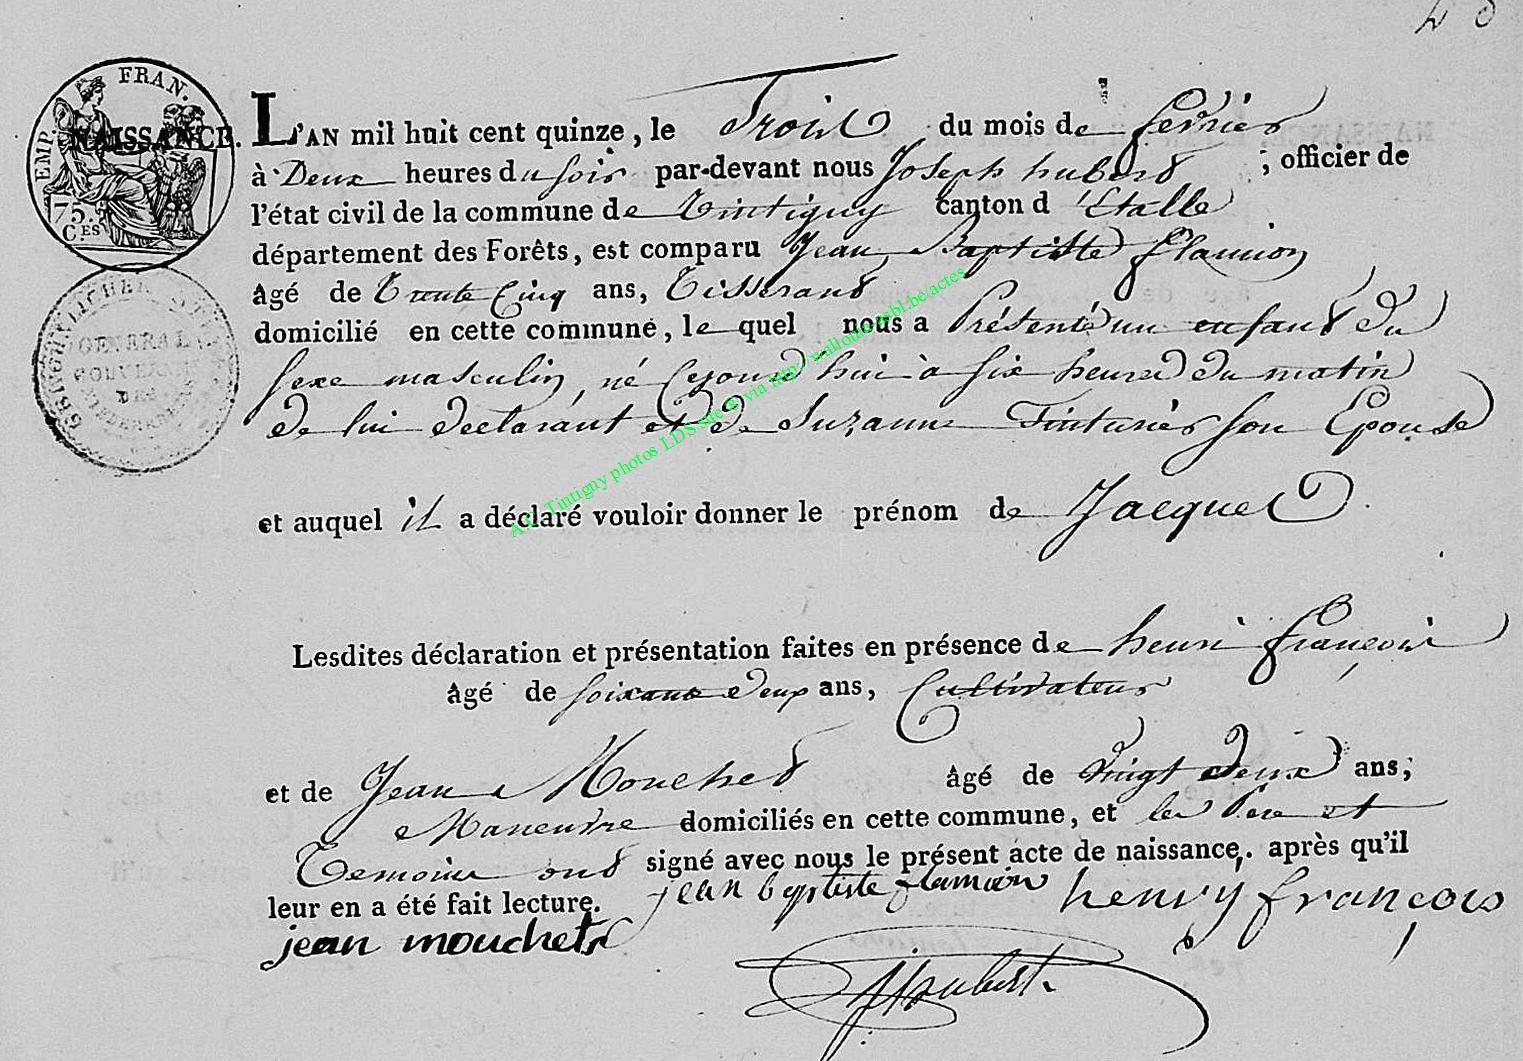 28
EMP. FRAN.
75.
C.ES
NAISSANCE.
GENERAL
GOUVERN
DES
L'AN mil huit cent quinze, le Trois du mois de fevrier
à Deux heures du soir par-devant nous Joseph hubert, officier de
l'état civil de la commune de Tintigny canton d'Etalle
département des Forêts, est comparu Jean Baptiste flamion
âgé de Trente Cinq ans, Tisserand
domicilié en cette commune, le quel nous a Présenté un enfant du
sexe masculin, né Cejourd'hui à six heures du matin
de lui declarant et de Suzanne Tinturier son Epouse
et auquel il a déclaré vouloir donner le prénom de Jacques
Lesdites déclaration et présentation faites en présence de henri françois
âgé de soixante deux ans, Cultivateur
et de Jean Mouchet âgé de Vingt deux ans,
Maneuvre domiciliés en cette commune, et les Pere et
Temoins ont signé avec nous le présent acte de naissance, après qu'il
leur en a été fait lecture. jean baptiste flamion henry françois
jean mouchet
JHubert
A.C. Tintigny photos LDS site & via http://wallonia-asbl.be/actes